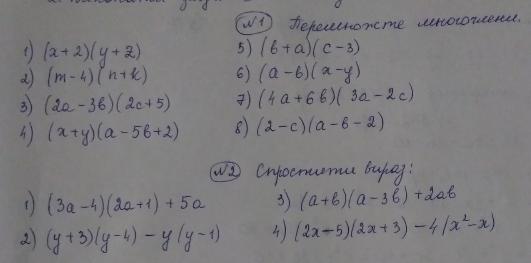 №1 Перемножте многочлени.
1) (x+2)(y+z)
2) (m-4)(n+k)
3) (2a-3b)(2c+5)
4) (x+y)(a-5b+2)
5) (b+a)(c-3)
6) (a-b)(x-y)
7) (4a+6b)(3a-2c)
8) (2-c)(a-b-2)
№2 Спростити вираз:
1) (3a-4)(2a+1)+5a
2) (y+3)(y-4)-y(y-1)
3) (a+b)(a-3b)+2ab
4) (2x-5)(2x+3)-4(x²-x)